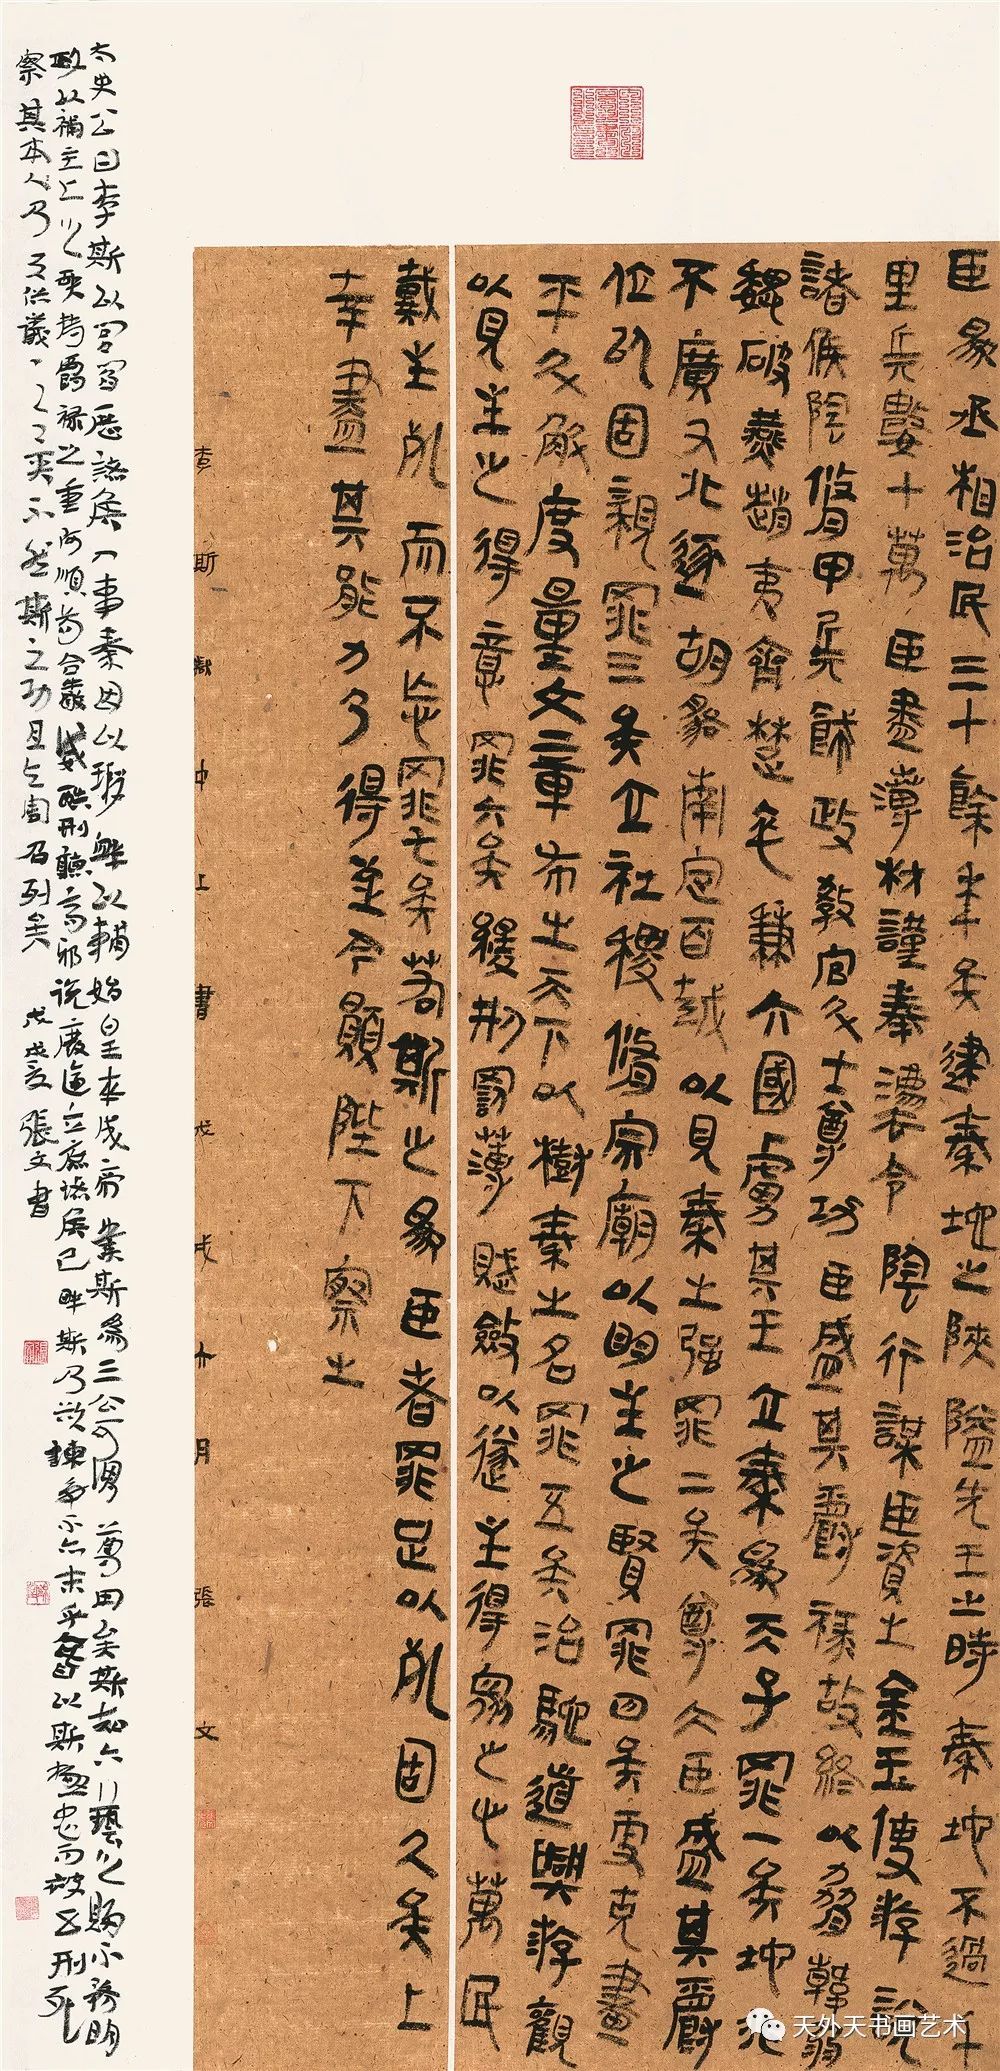 臣為丞相治民三十餘年矣逮秦地之陝隘先王之時秦地不過千
里兵數十萬臣盡薄材謹奉灋令陰行謀臣資之金玉使游說
諸侯陰脩甲兵飾政教官鬥士尊功臣盛其爵祿故終以脅韓弱
魏破燕趙夷齊楚卒兼六國虜其王立秦為天子罪一矣地非
不廣又北逐胡貉南定百越以見秦之强罪二矣尊大臣盛其爵
位以固親罪三矣立社稷脩宗廟以明主之賢罪四矣更克畫
平斗斛度量文章布之天下以樹秦之名罪五矣治馳道興游觀
以見主之得意罪六矣緩刑罰薄賦斂以遂主得眾之心萬民
戴主死而不忘罪七矣若斯之為臣者罪足以死固久矣上
幸盡其能力乃得至今願陛下察之
李斯獄中上書戊戌六月張文
太史公曰李斯以閭閻歷諸侯入事秦因以瑕釁以輔始皇卒成帝業斯為三公可謂尊用矣斯知六藝之歸不務明
政以補主上之缺持爵祿之重阿順苟合嚴威酷刑聽高邪說廢適立庶諸侯已畔斯乃欲諫爭不亦末乎人皆以斯極忠而被五刑死
察其本乃與俗議之異不然斯之功且與周召列矣 戊戌夏 張文書
天外天书画艺术